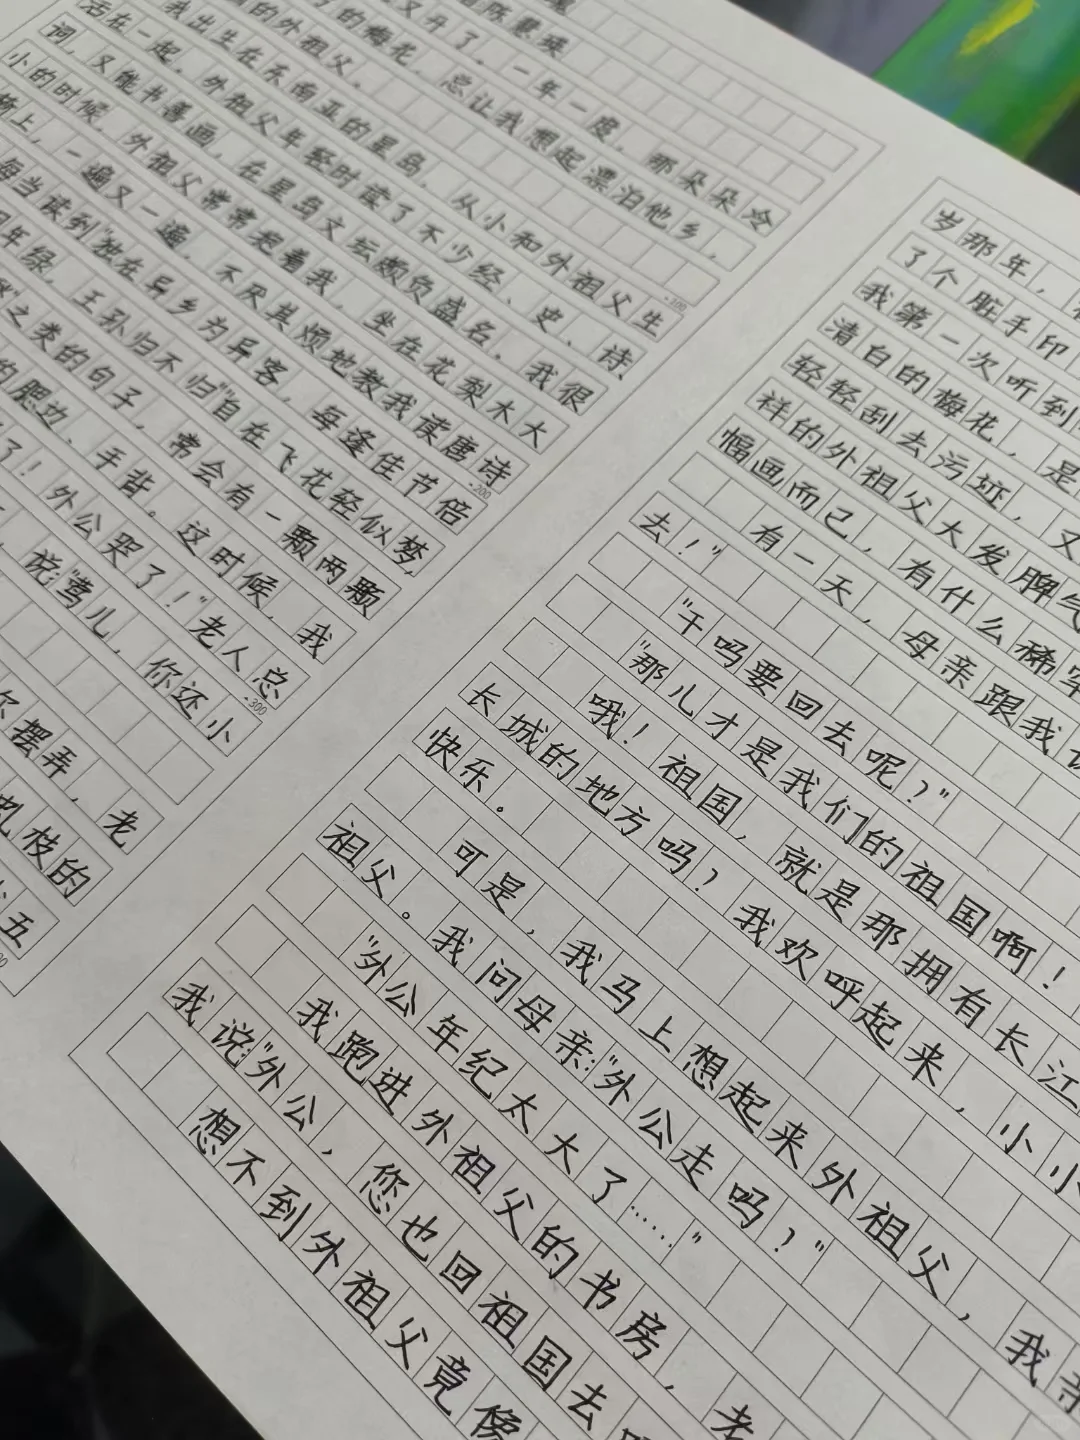 魂
陈慧瑛
又开了，一年一度，那朵朵冷
的梅花，总让我想起漂泊他乡、
的外祖父。
我出生在东南亚的星岛，从小和外祖父生
活在一起。外祖父年轻时读了不少经、史、诗、
词，又能书善画，在星岛文坛颇负盛名。我很
小的时候，外祖父常常抱着我，坐在花梨木大
椅上，一遍又一遍，不厌其烦地教我读唐诗
每当读到"独在异乡为异客，每逢佳节倍
年绿，王孙归不归""自在飞花轻似梦，
之类的句子，常会有一颗两颗
的腮边、手背。这时候，我
了！外公哭了！"老人总
说："莺儿，你还小
摆弄，老
枝的
五
岁那年，
了个脏手印
我第一次听到
清白的梅花，是
轻轻刮去污迹，又
祥的外祖父大发脾气
幅画而已，有什么稀罕
有一天，母亲跟我
去！"
"干吗要回去呢？"
"那儿才是我们的祖国啊！
哦！祖国，就是那拥有长江
长城的地方吗？我欢呼起来，小小
快乐。
可是，我马上想起来外祖父，我亲
祖父。我问母亲："外公走吗？"
"外公年纪太大了……"
我跑进外祖父的书房，老
我说："外公，您也回祖国去
想不到外祖父竟像